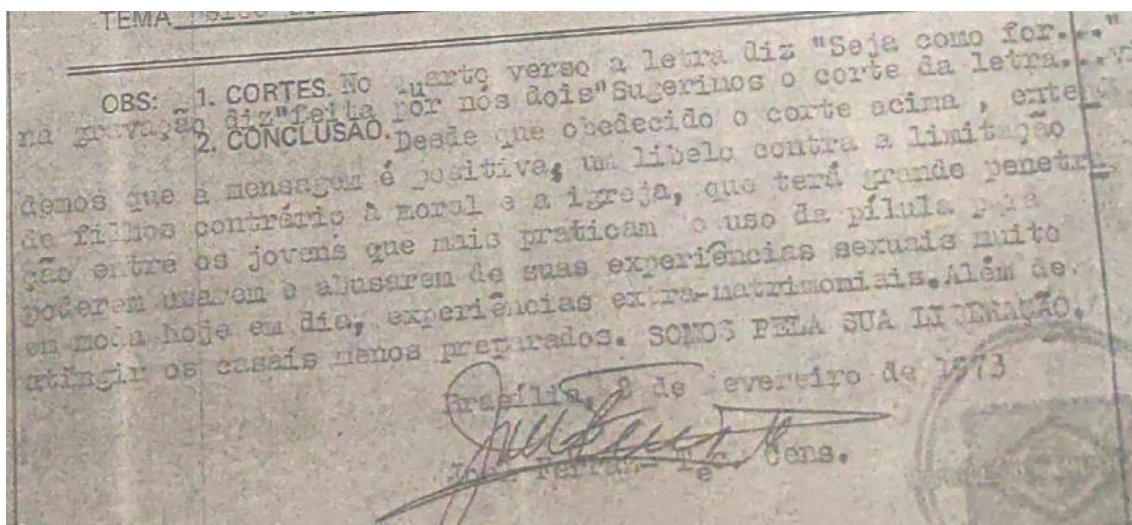 TEMA
OBS: 1. CORTES. No quarto verso a letra diz "Seja como for..."
na gravação diz"feita por nós dois"Sugerimos o corte da letra...
2. CONCLUSÃO. Desde que obedecido o corte acima , enten
demos que a mensagem é positiva, um libelo contra a limitação
de filhos contrário à moral e a igreja, que terá grande penetra
ção entre os jovens que mais praticam o uso da pílula para
poderem usarem e abusarem de suas experiências sexuais muito
em moda hoje em dia, experiências extra-matrimoniais.Além de
atingir os casais menos preparados. SOMOS PELA SUA LIBERAÇÃO.
Brasília, 2 de fevereiro de 1973
Tec. Cens.